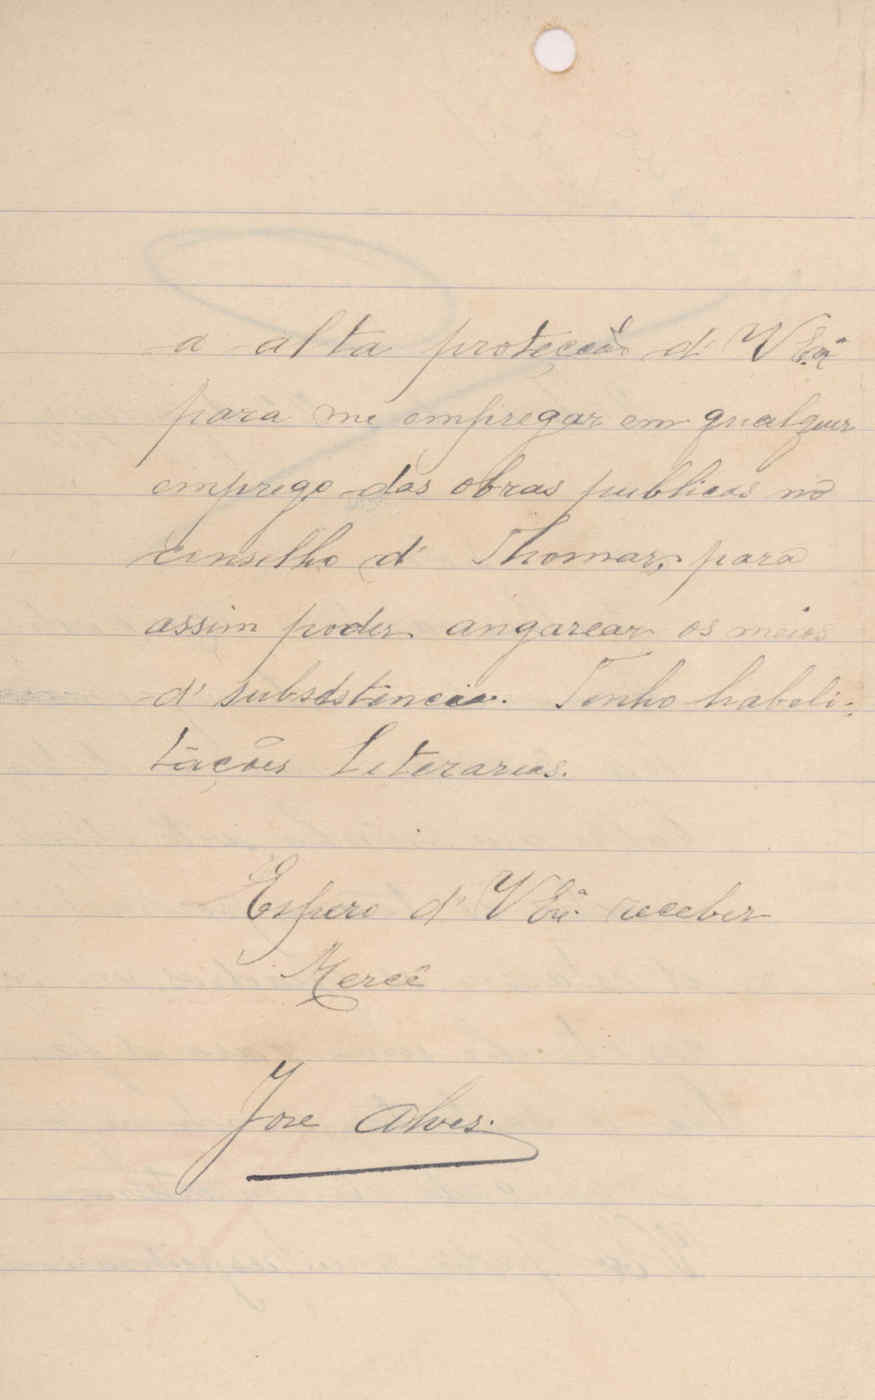 a alta proteção d' V Exª
para me empregar em qualquer
emprego das obras publicas no
conselho d' Thomar, para
assim poder angarear os meios
d' subsistencia. Tenho habeli-
tações Literarias.
Espero d' V Exª receber
Mercê
Jose Alves.